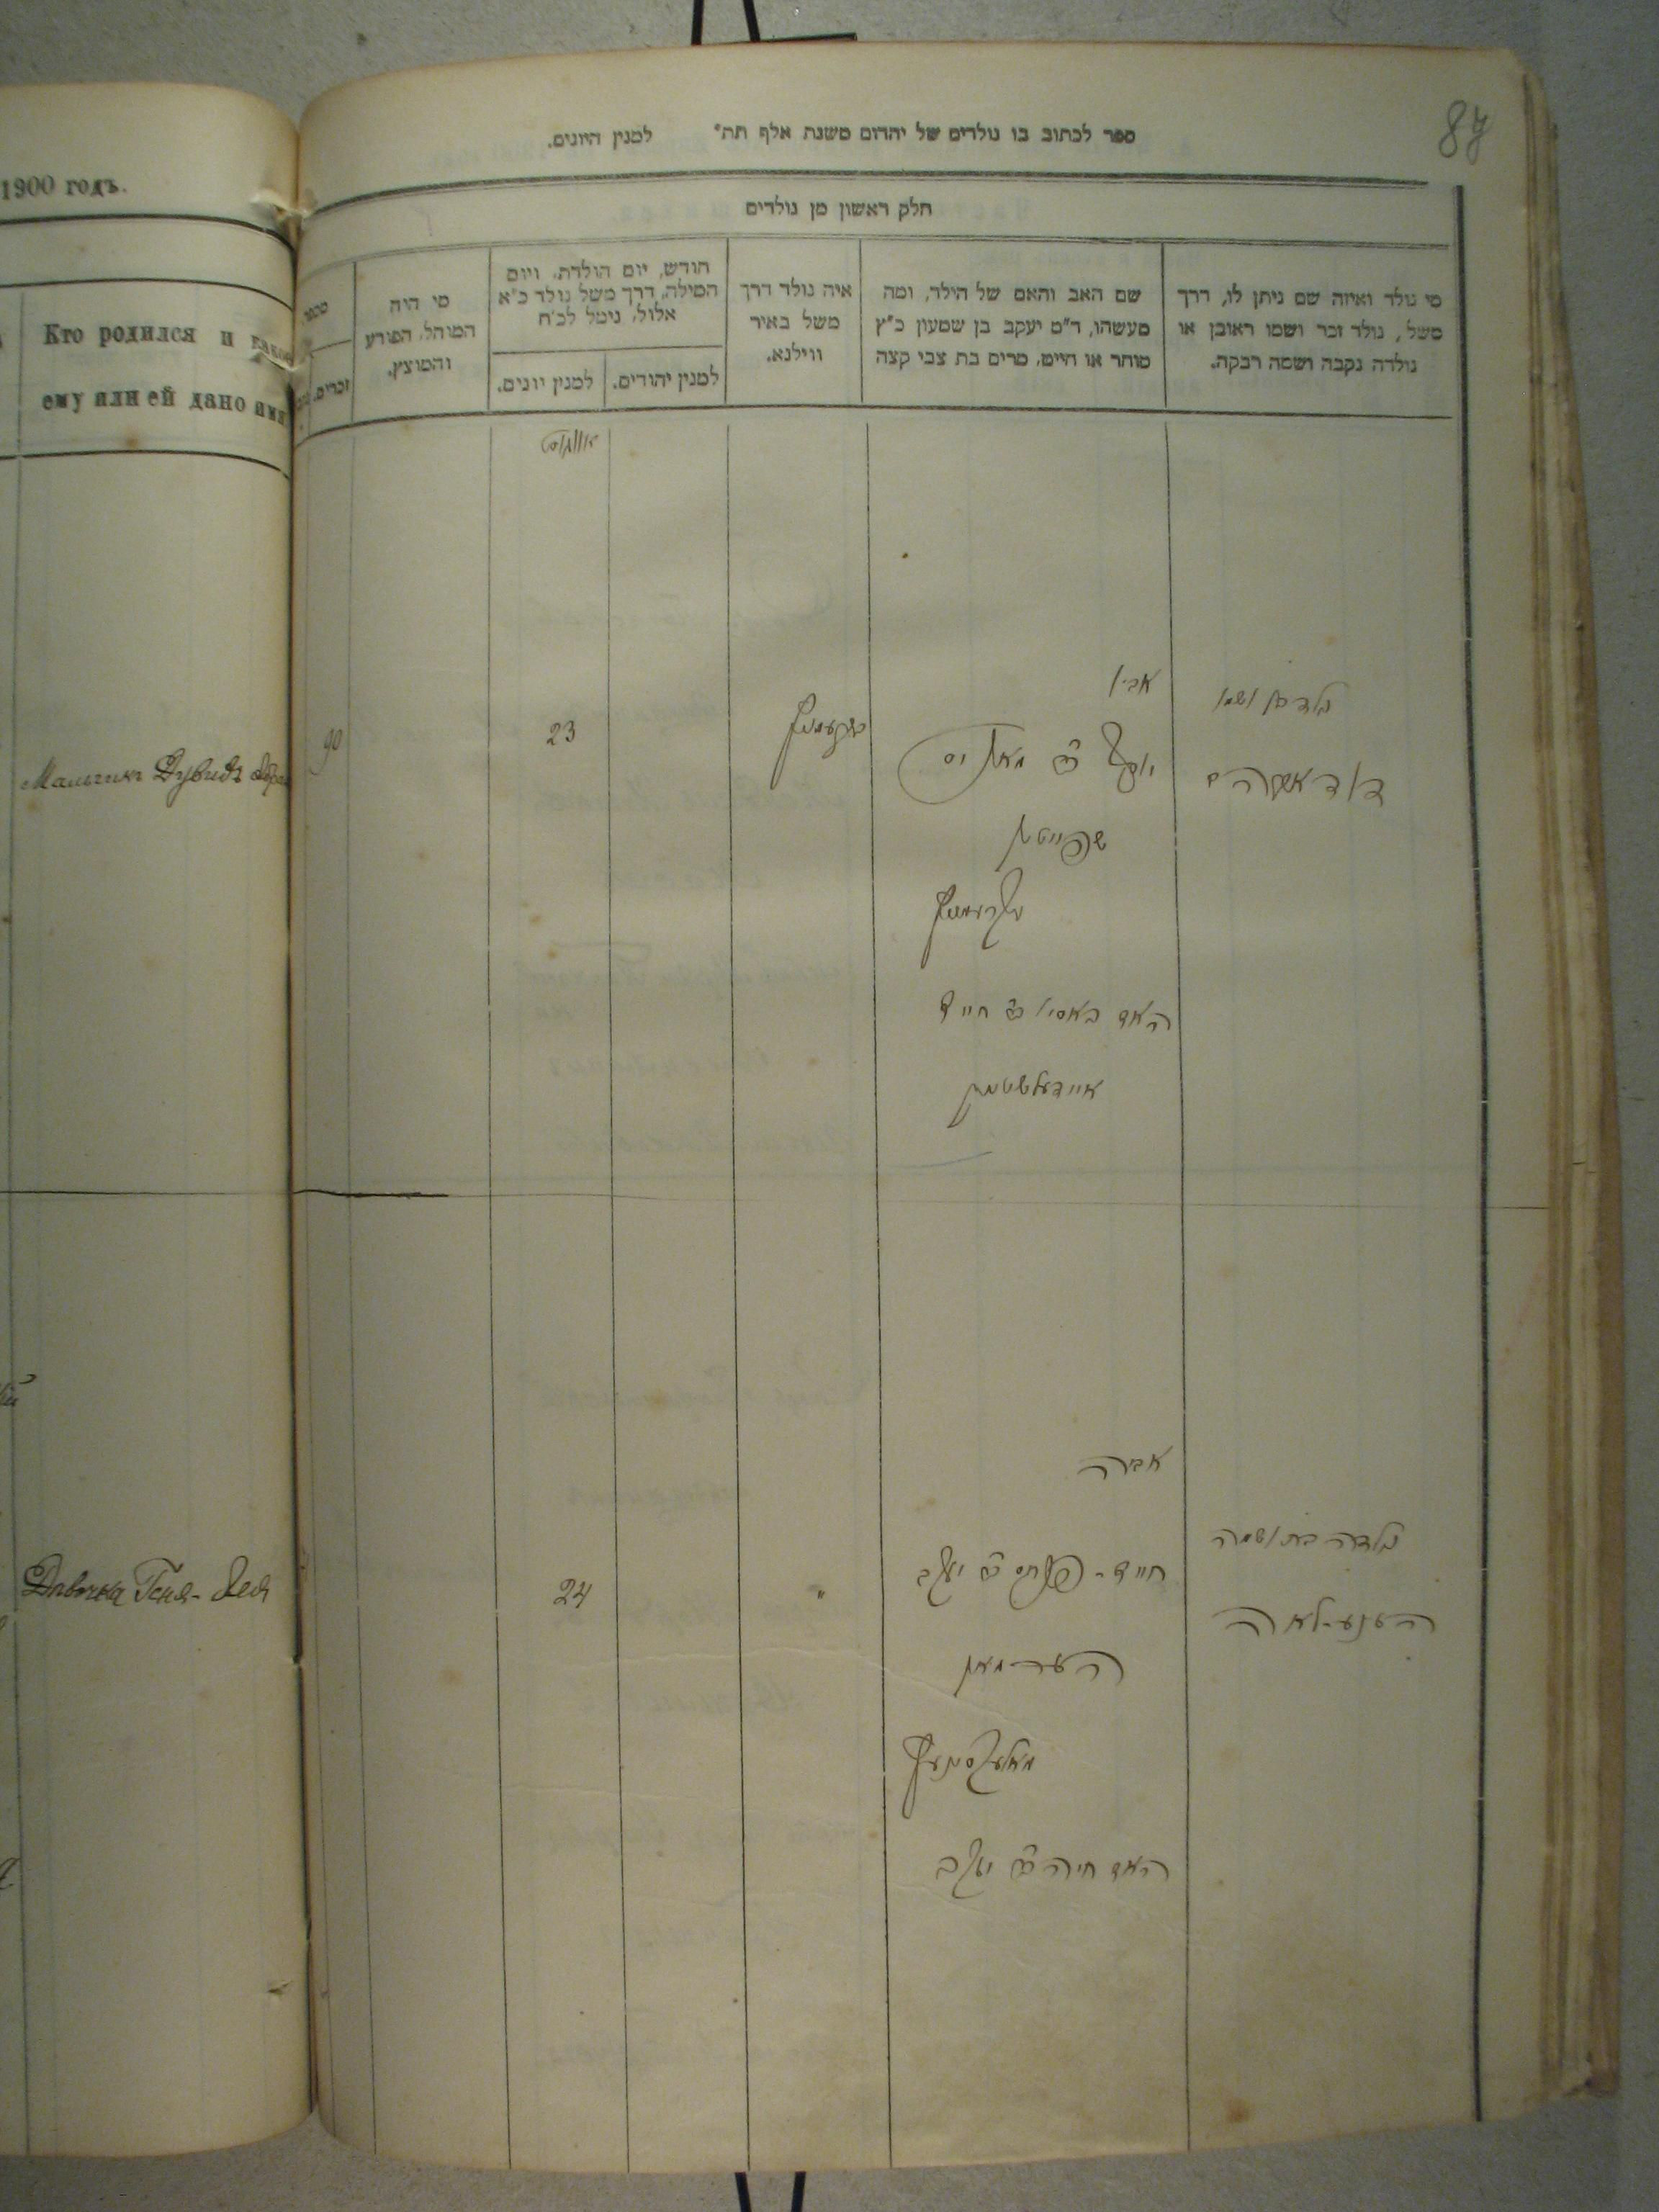 1900 годъ.
Кто родился и како
ему или ей дано имя
Мальчикъ Дувидъ Абра
Девочка Геня-Лея
87
ספר לכתוב בו נולדים של יהדום משנת אלף תת" למנין היונים.
חלק ראשון מן נולדים
מי נולד ואיזה שם ניתן לו, דרך
משל, נולד זכר ושמו ראובן או
נולדה נקבה ושמה רבקה.
שם האב והאם של הילד, ומה
מעשהו, ד"מ יעקב בן שמעון כ"ץ
סוחר או חייט, מרים בת צבי קצה
איה נולד דרך
משל באיר
ווילנא.
חודש, יום הולדת, ויום
המילה, דרך משל נולד כ"א
אלול, נימל לכ"ח
למנין יהודים.
למנין יונים.
מי היה
המוהל, הפורע
והמוצץ.
זכרים.
אווגוסט
נולד בן ושמו
דוד אברהם
אביו
23
90
האם באסיו בת חיים
איידעלשטיין
נולדה בת ושמה
הענע-לאה
אביה
חיים-פנחס בן יעקב
הערמאן
האם חיה בת יעקב
"
24